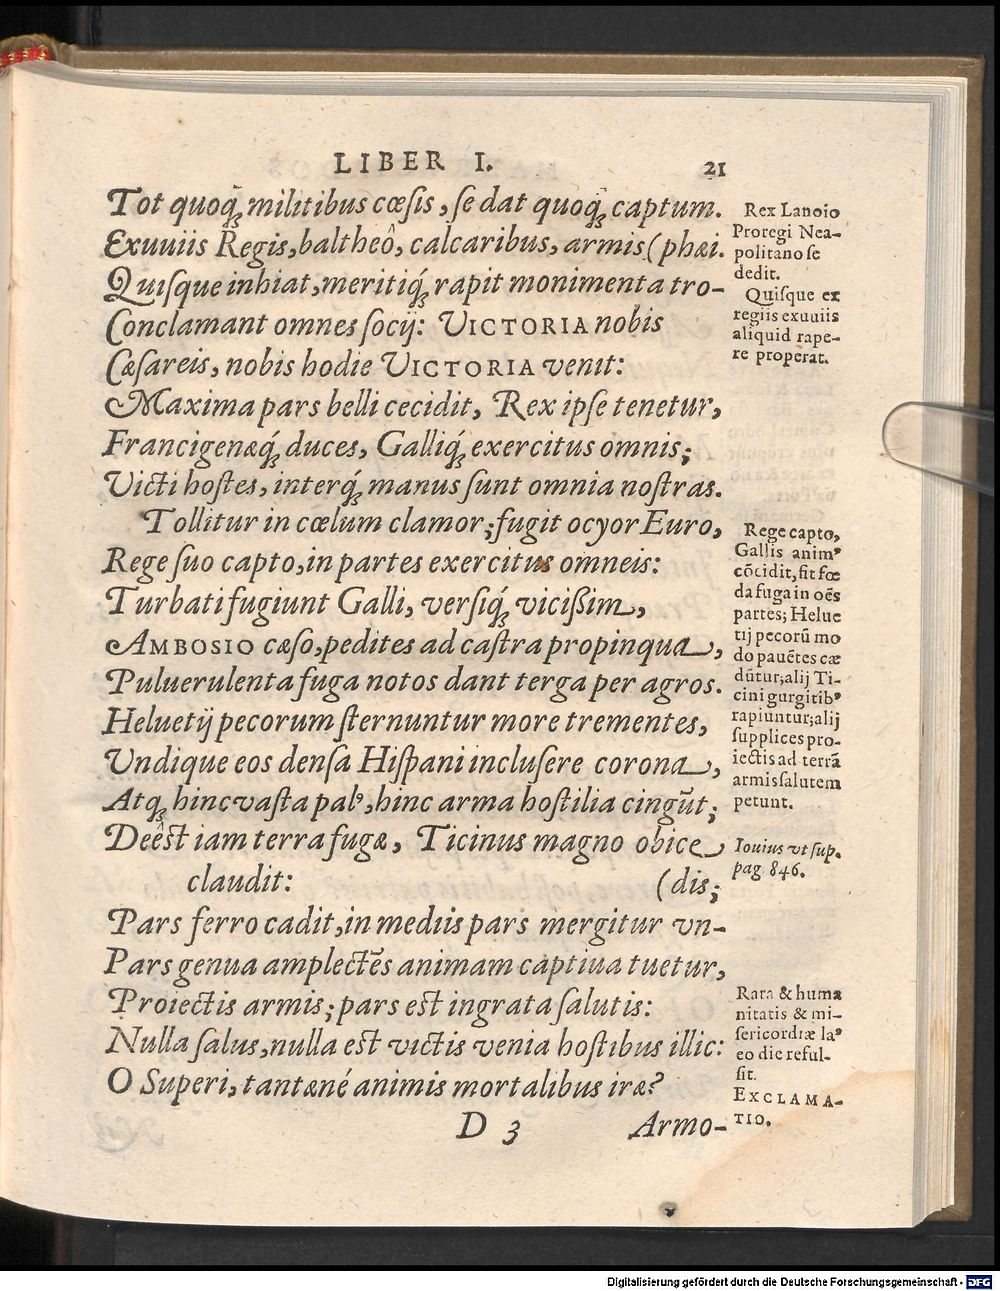 LIBER I. 21
Tot quoq́ꝫ militibus cæsis, se dat quoq́ꝫ captum.
Exuuiis Regis, baltheô, calcaribus, armis (phæi.
Quisque inhiat, meritiq́ꝫ rapit monimenta tro-
Conclamant omnes socij: VICTORIA nobis
Cæsareis, nobis hodie VICTORIA venit:
Maxima pars belli cecidit, Rex ipse tenetur,
Francigenæq́ꝫ duces, Galliq́ꝫ exercitus omnis;
Victi hostes, interq́ꝫ manus sunt omnia nostras.
Tollitur in cœlum clamor; fugit ocyor Euro,
Rege suo capto, in partes exercitus omneis:
Turbati fugiunt Galli, versiq́ꝫ vicißim,
AMBOSIO cæso, pedites ad castra propinqua,
Puluerulenta fuga notos dant terga per agros.
Heluetij pecorum sternuntur more trementes,
Undique eos densa Hispani inclusere corona,
Atqꝫ hinc vasta palꝰ, hinc arma hostilia cingūt;
Deêst iam terra fugæ, Ticinus magno obice
claudit: (dis;
Pars ferro cadit, in mediis pars mergitur vn-
Pars genua amplectẽs animam captiua tuetur,
Proiectis armis; pars est ingrata salutis:
Nulla salus, nulla est victis venia hostibus illic:
O Superi, tantæné animis mortalibus iræ?
D 3 Armo-
Rex Lanoio
Proregi Nea-
politano se
dedit.
Quisque ex
regiis exuuiis
aliquid rape-
re properat.
Rege capto,
Gallis animꝰ
cõcidit, fit fœ
da fuga in oẽs
partes; Helue
tij pecorũ mo
do pauẽtes cæ
dũtur; alij Ti-
cini gurgitibꝰ
rapiuntur; alij
supplices pro-
iectis ad terrã
armis salutem
petunt.
Iouius vt sup.
pag. 846.
Rara & huma
nitatis & mi-
sericordiæ laꝰ
eo die reful-
sit.
EXCLAMA-
TIO.
Digitalisierung gefördert durch die Deutsche Forschungsgemeinschaft - DFG